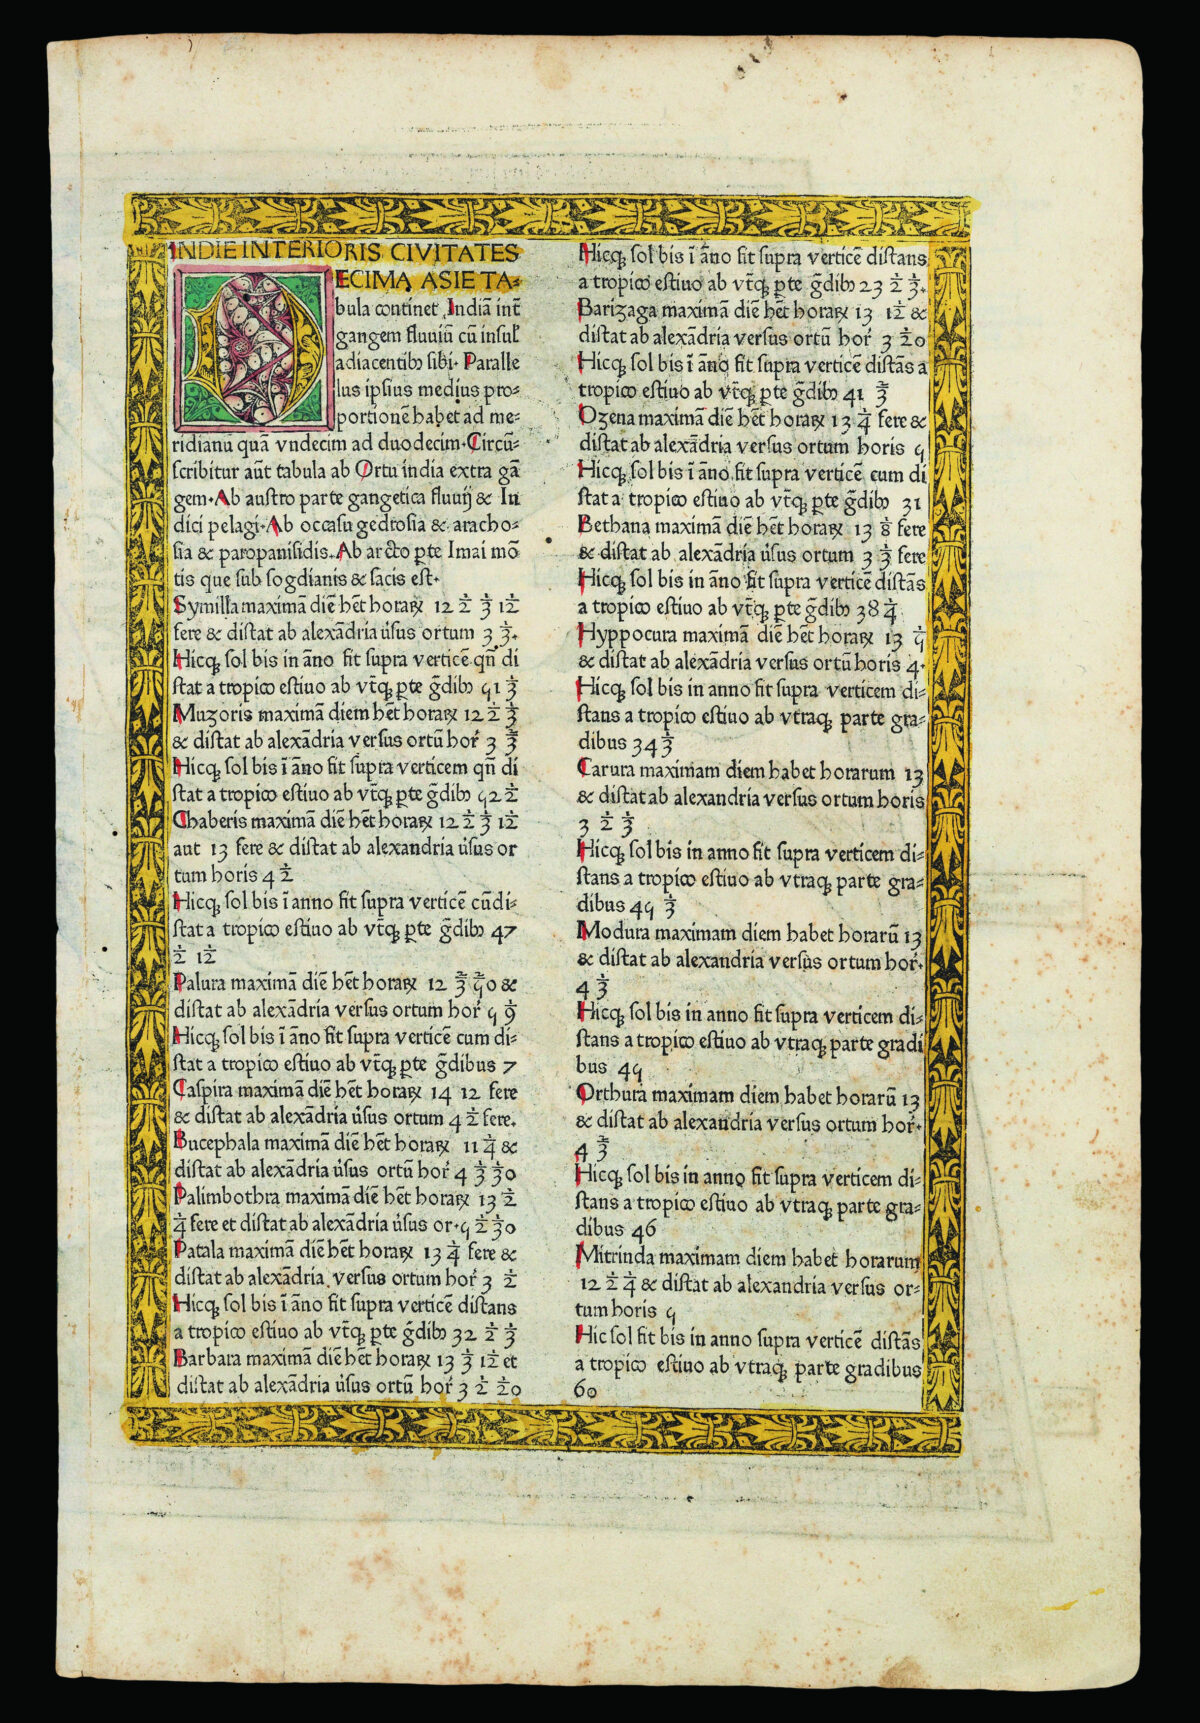 INDIE INTERIORIS CIVITATES
DECIMA ASIE TA-
bula continet Indiā int̄
gangem fluuiū cū insul̄
adiacentibꝫ sibi. Paralle
lus ipsius medius pro-
portionē habet ad me-
ridianū quā vndecim ad duodecim. Circū-
scribitur aūt tabula ab Ortu india extra gā
gem. Ab austro parte gangetica fluuij & In
dici pelagi. Ab occasu gedrosia & aracho-
sia & paropanisidis. Ab arcto ꝑte Imai mō
tis que sub sogdianis & sacis est.
Symilla maximā diē hēt horaꝝ 12 ½ ⅓ 1/12
fere & distat ab alexādria ūsus ortum 3 ⅓.
Hicqꝫ sol bis in āno fit supra verticē qn̄ di
stat a tropico estiuo ab vt̄qꝫ ꝑte ḡdibꝫ 51 ⅓
Muzoris maximā diem hēt horaꝝ 12 ½ ⅓
& distat ab alexādria versus ortū hoŕ 3 ⅔
Hicqꝫ sol bis ī āno fit supra verticem qn̄ di
stat a tropico estiuo ab vt̄qꝫ ꝑte ḡdibꝫ 52 ½
Chaberis maximā diē hēt horaꝝ 12 ½ ⅓ 1/12
aut 13 fere & distat ab alexandria ūsus or
tum horis 4 ½
Hicqꝫ sol bis ī anno fit supra verticē cū di-
stat a tropico estiuo ab vt̄qꝫ ꝑte ḡdibꝫ 47
½ 1/12
Palura maximā diē hēt horaꝝ 12 ⅔ &
distat ab alexādria versus ortum hoŕ 5 1/9
Hicqꝫ sol bis ī āno fit supra verticē cum di-
stat a tropico estiuo ab vt̄qꝫ ꝑte ḡdibus 7
Caspira maximā diē hēt horaꝝ 14 12 fere
& distat ab alexādria ūsus ortum 4 ½ fere.
Bucephala maximā diē hēt horaꝝ 11 ¼ &
distat ab alexādria ūsus ortū hoŕ 4 ⅓ 1/30
Palimbothra maximā diē hēt horaꝝ 13 ½
¼ fere et distat ab alexādria ūsus or. 5 ½ 1/30
Patala maximā diē hēt horaꝝ 13 ¼ fere &
distat ab alexādria versus ortum hoŕ 3 ½
Hicqꝫ sol bis ī āno fit supra verticē distans
a tropico estiuo ab vt̄qꝫ ꝑte ḡdibꝫ 32 ½ ⅓
Barbara maximā diē hēt horaꝝ 13 ⅓ 1/12 et
distat ab alexādria ūsus ortū hoŕ 3 ½ 1/20
Hicqꝫ sol bis ī āno fit supra verticē distans
a tropico estiuo ab vt̄qꝫ ꝑte ḡdibꝫ 23 ½ ⅓.
Barizaga maximā diē hēt horaꝝ 13 1/12 &
distat ab alexādria versus ortū hoŕ 3 1/20
Hicqꝫ sol bis ī āno fit supra verticē distās a
tropico estiuo ab vt̄qꝫ ꝑte ḡdibꝫ 41 ⅔
Ozena maximā diē hēt horaꝝ 13 ¼ fere &
distat ab alexādria versus ortum horis 5
Hicqꝫ sol bis ī āno fit supra verticē cum di
stat a tropico estiuo ab vt̄qꝫ ꝑte ḡdibꝫ 31
Bethana maximā diē hēt horaꝝ 13 ⅛ fere
& distat ab alexādria ūsus ortum 3 ⅓ fere
Hicqꝫ sol bis in āno fit supra verticē distās
a tropico estiuo ab vt̄qꝫ ꝑte ḡdibꝫ 38 ¼
Hyppocura maximā diē hēt horaꝝ 13 1/5
& distat ab alexādria versus ortū horis 4.
Hicqꝫ sol bis in anno fit supra verticem di-
stans a tropico estiuo ab vtraqꝫ parte gra-
dibus 34 ⅓
Carura maximam diem habet horarum 13
& distat ab alexandria versus ortum horis
3 ½ ⅓
Hicqꝫ sol bis in anno fit supra verticem di-
stans a tropico estiuo ab vtraqꝫ parte gra-
dibus 45 ⅓
Modura maximam diem habet horarū 13
& distat ab alexandria versus ortum hoŕ.
4 ⅓
Hicqꝫ sol bis in anno fit supra verticem di-
stans a tropico estiuo ab vtraqꝫ parte gradi
bus 45
Orthura maximam diem habet horarū 13
& distat ab alexandria versus ortum hoŕ.
4 ⅔
Hicqꝫ sol bis in anno fit supra verticem di-
stans a tropico estiuo ab vtraqꝫ parte gra-
dibus 46
Mitrinda maximam diem habet horarum
12 ½ ¼ & distat ab alexandria versus or-
tum horis 5
Hic sol fit bis in anno supra verticē distās
a tropico estiuo ab vtraqꝫ parte gradibus
60